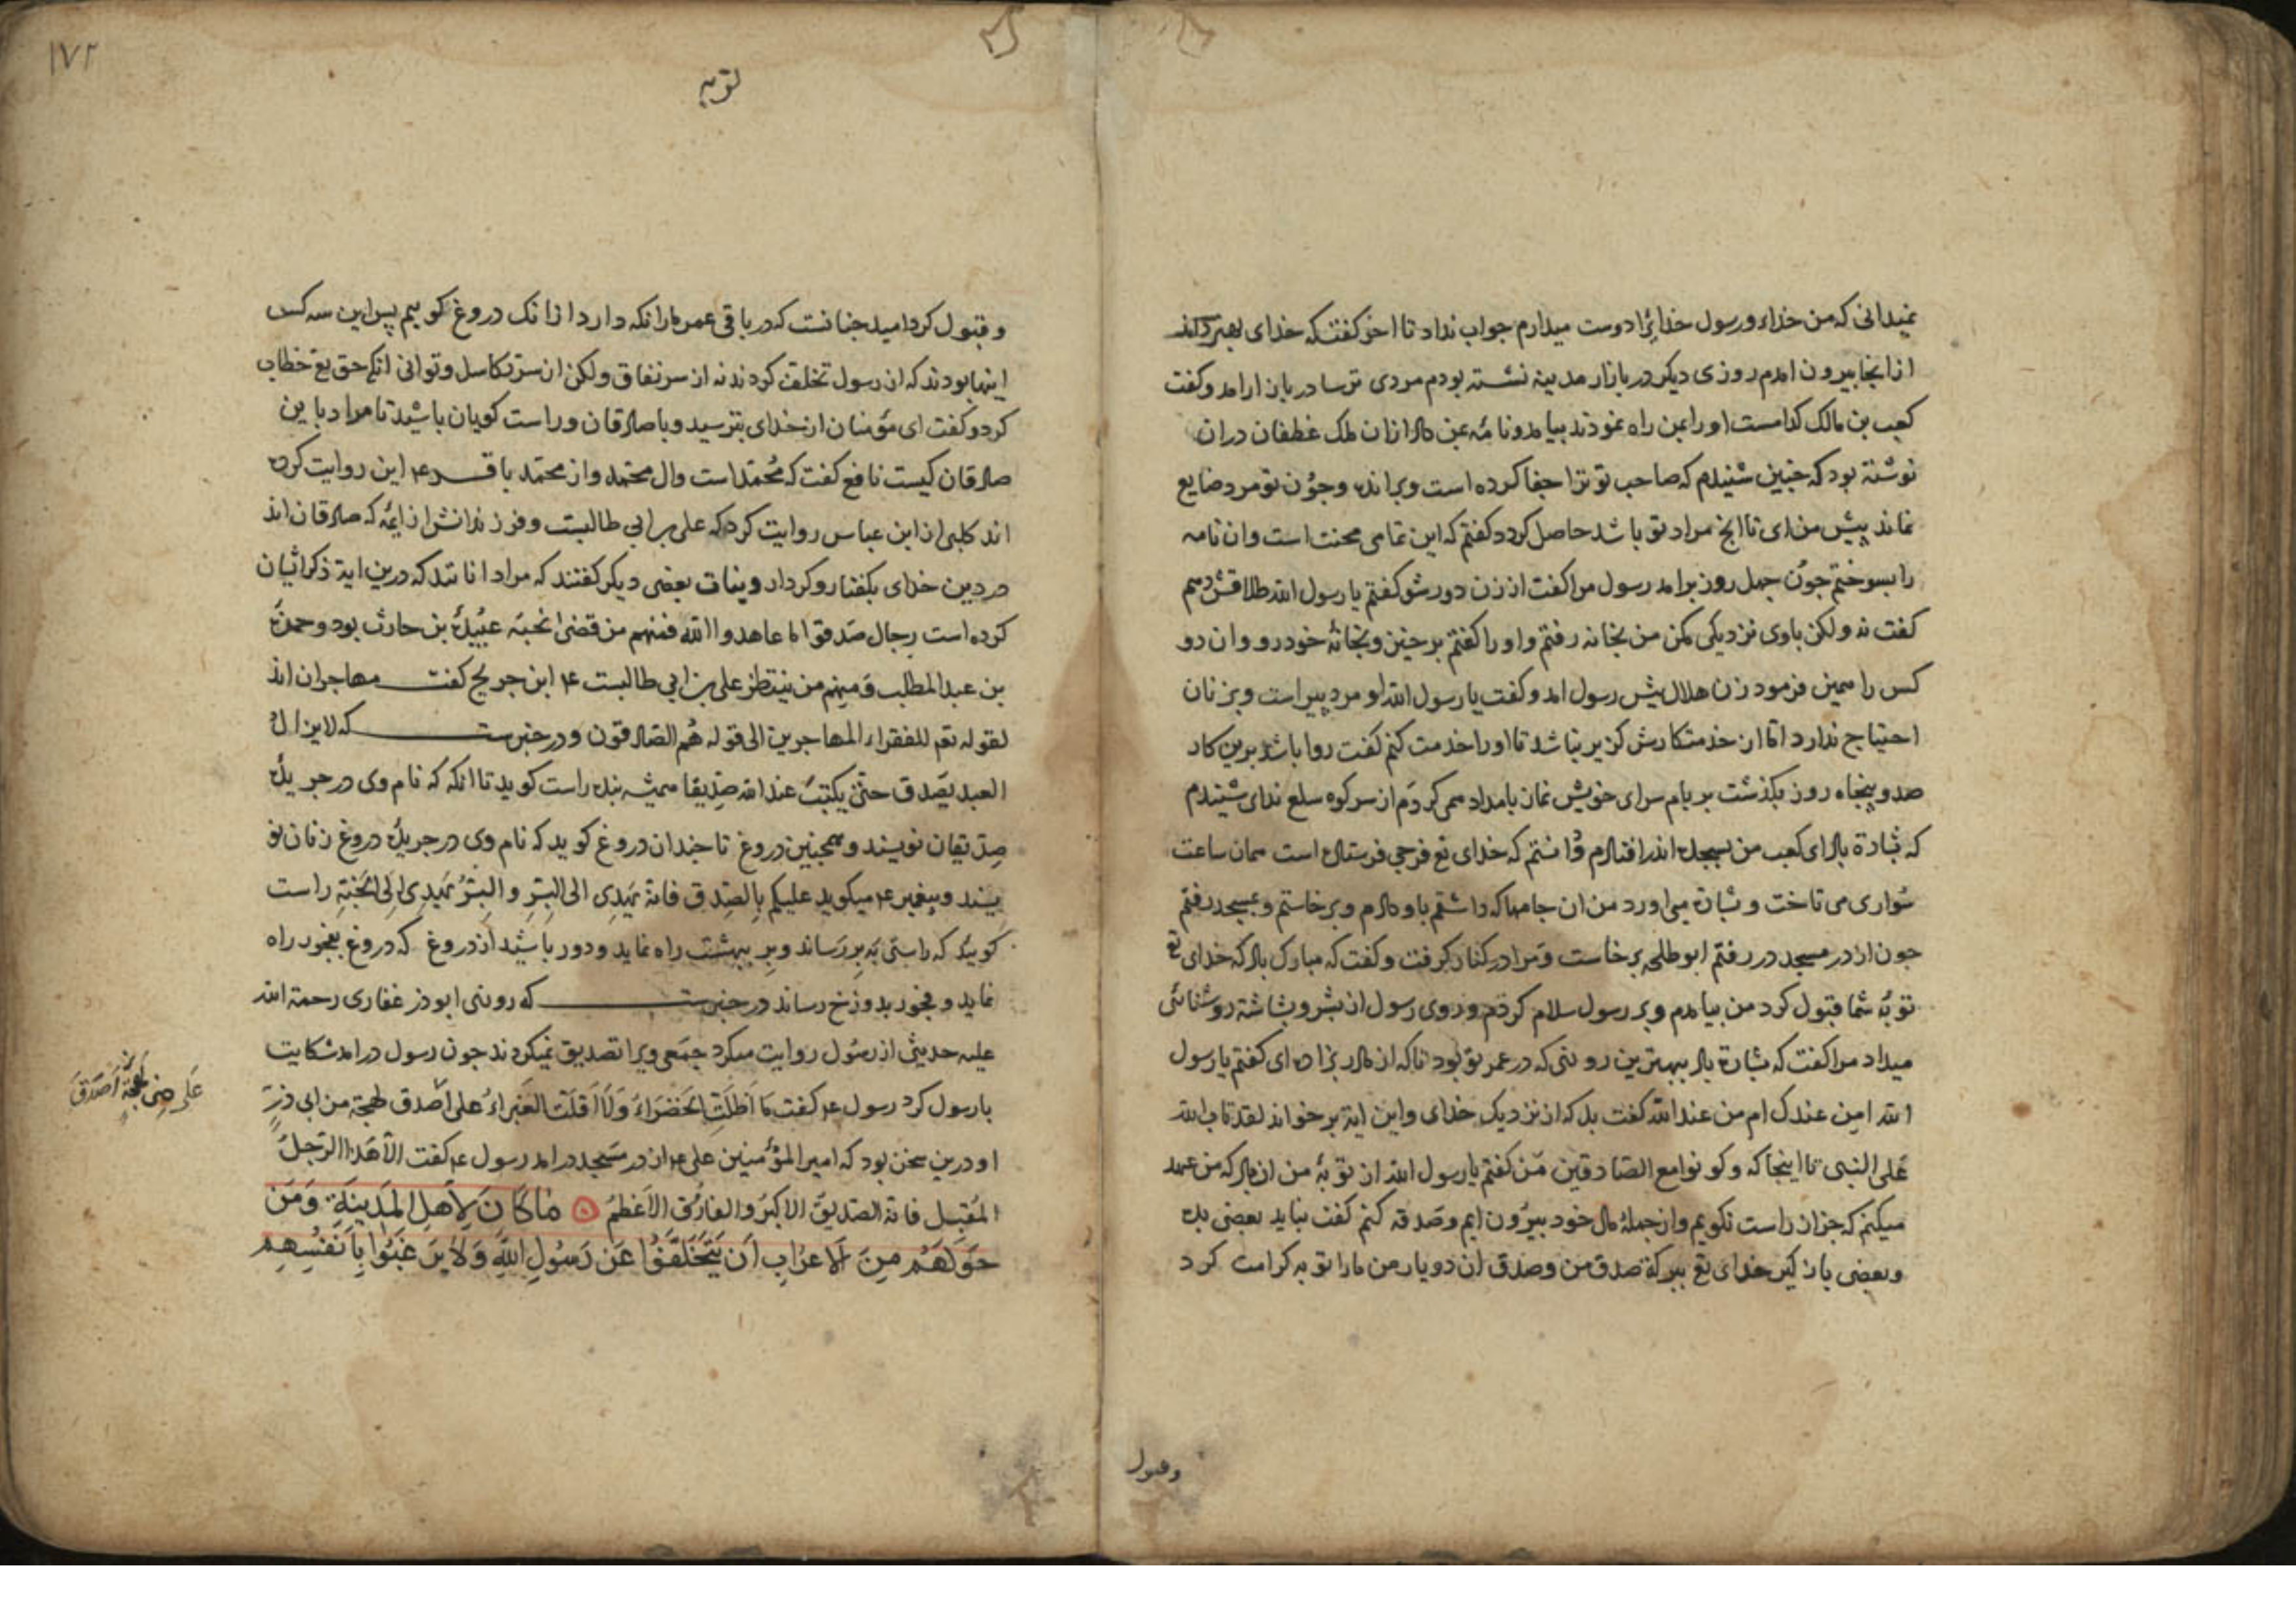 نمیدانی که من خدا و رسول خدایرا دوست میدارم جواب نداد تا اخر کفت که خدای بهتر داند
از انجا بیرون امدم روزی دیکر در بازار مدینه نشسته بودم مردی ترسا در بازار امد و کفت
کعب بن مالک کدامست او را بمن راه نمودند بیامد و نامهٔ بمن داد از ان ملک غطفان دران
نوشته بود که جنین شنیدم که صاحب تو ترا جفا کرده است و برانده وجون تو مرد ضایع
نماند پیش من ای تا انج مراد تو باشد حاصل کردد کفتم که این تمامی محنت است وان نامه
را بسوختم جون جهل روز برامد رسول مرا کفت از زن دور شو کفتم یا رسول الله طلاقش دهم
کفت نه ولکن باوی نزدیکی مکن من بخانه رفتم و او را کفتم برخیز و بخانهٔ خود رو وان دو
کس را همین فرمود زن هلال پیش رسول امد و کفت یا رسول الله او مرد پیر است و بزنان
احتیاج ندارد اما از خدمتکارش کزیر نباشد تا او را خدمت کنم کفت روا باشد برین کار
صد و پنجاه روز بکذشت بر بام سرای خویش نماز بامداد همی کردم از سر کوه سلع ندای شنیدم
که بشارة باد ای کعب من بسجده اندر افتادم دانستم که خدای تع فرجی فرستاد است همان ساعت
سواری می تاخت و بشارة می اورد من ان جامها که داشتم باو دادم و برخاستم و بمسجد رفتم
جون از در مسجد در رفتم ابو طلحه برخاست و مرا در کنار کرفت و کفت که مبارک باد که خدای تع
توبهٔ شما قبول کرد من بیامدم و بر رسول سلام کردم و روی رسول از بشر و بشاشة روشنائی
میداد مرا کفت که بشارة باد بهترین روزی که در عمر تو بود تا که از مادر بزادهٔ ای کفتم یا رسول
الله امن عندک ام من عند الله کفت بل که از نزدیک خدای و این ایة بر خواند لقد تاب الله
علی النبی تا اینجا که و کونوا مع الصادقین من کفتم یا رسول الله از توبهٔ من ان باد که من عهد
میکنم که جز از راست نکویم و از جملهٔ مال خود بیرون ایم و صدقه کنم کفت نباید بعضی بده
وبعضی باز کیر خدای تع ببرکة صدق من وصدق ان دو یار من ما را توبه کرامت کرد
وقبول
توبه
۱۷۲
وقبول کرد امید جنانست که در باقی عمر مارا نکه دارد از انک دروغ کوییم پس این سه کس
اینها بودند که از رسول تخلف کردند نه از سر نفاق ولکن از سر تکاسل و توانی انکه حق تع خطاب
کرد و کفت ای مؤمنان از خدای بترسید و با صادقان و راست کویان باشید تا مراد باین
صادقان کیست نافع کفت که محمد است و ال محمد و از محمد باقر ع این روایت کرده
اند کلبی از ابن عباس روایت کرد که علی بن ابی طالبست و فرزندانش از ایمه که صادقان اند
در دین خدای بکفتار و کردار و نیات بعضی دیکر کفتند که مراد انانند که درین ایة ذکر ایشان
کرده است رجال صدقوا ما عاهدوا الله فمنهم من قضی نحبه عبیدة بن حارث بود و حمزة
بن عبد المطلب و منهم من ینتظر علی بن ابی طالبست ع ابن جریج کفت مهاجران اند
لقوله تع للفقراء المهاجرین الی قوله هم الصادقون و در خبرست که لایزال
العبد یصدق حتی یکتب عند الله صدیقا همیشه بنده راست کوید تا انکه که نام وی در جریدهٔ
صدیقان نویسند و همجنین دروغ تا جندان دروغ کوید که نام وی در جریدهٔ دروغ زنان نو
یسند و پیغمبر ع میکوید علیکم بالصدق فانه یهدی الی البر و البر یهدی الی الجنة راست
کویید که راستی به بر رساند و بر ببهشت راه نماید و دور باشید از دروغ که دروغ بفجور راه
نماید و فجور بدوزخ رساند در خبرست که روزی ابوذر غفاری رحمة الله
علیه حدیثی از رسول روایت میکرد جمعی ویرا تصدیق نمیکردند جون رسول درامد شکایت
با رسول کرد رسول ع کفت ما اظلت الخضراء ولا اقلت الغبراء علی اصدق لهجة من ابی ذر
علی ذی لهجة اصدق
او درین سخن بود که امیر المؤمنین علی ع از در مسجد درامد رسول ع کفت الا هذا الرجل
المقبل فانه الصدیق الاکبر و الفاروق الاعظم مَا كَانَ لِأَهْلِ الْمَدِينَةِ وَمَنْ
حَوْلَهُمْ مِنَ الْأَعْرَابِ أَنْ يَتَخَلَّفُوا عَنْ رَسُولِ اللَّهِ وَلَا يَرْغَبُوا بِأَنْفُسِهِمْ